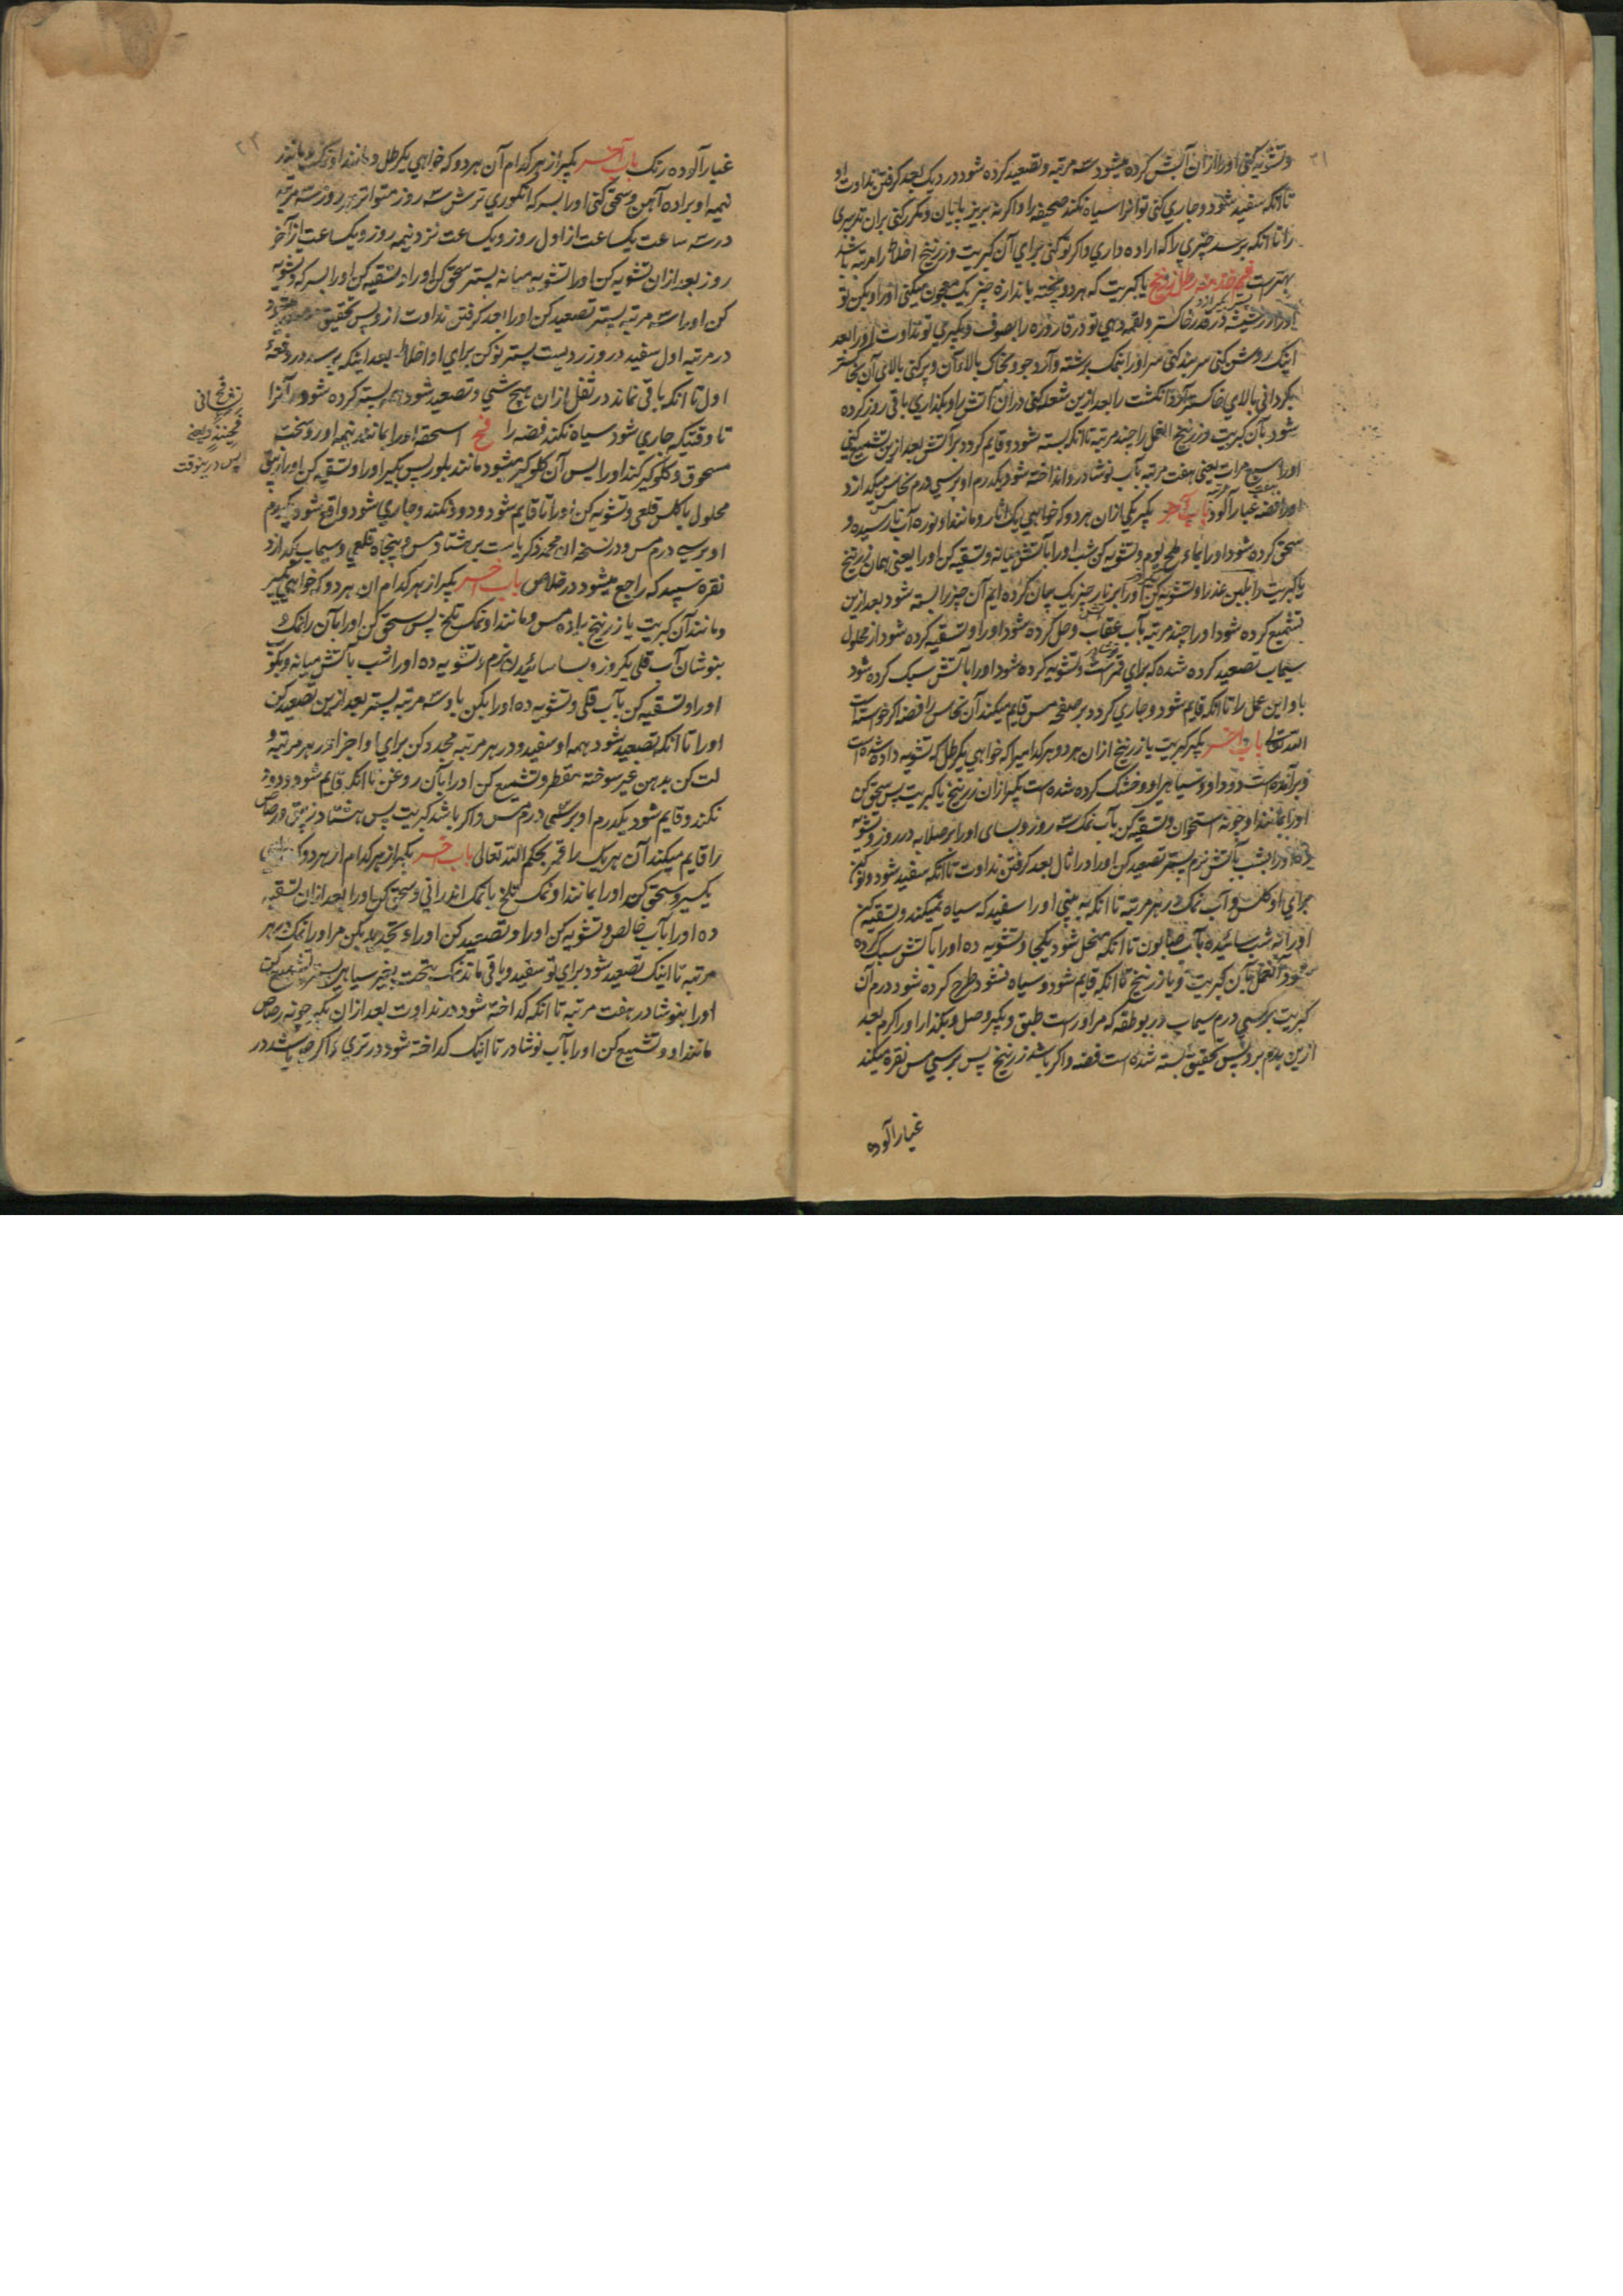 ۲۱
وتشویه کنی اورا ازان آتش کرده میشود سه مرتبه وتصعید کرده شود در دیک بعد کرفتن نداوت او
تا آنکه سفید شود وجاری کنی تو آنرا سیاه نکند صحیفه را واکر نه بریز بابیان ومکرر کنی بران تدبیری
را تا آنکه برسد چیزی را که اراده داری واکر نو کنی برای آن کبریت وزرنیخ اخلاط را مرتبه باشد
بهترست رطل زرنیخ یا کبریت که هردو پخته باندازه چیز یک معجون میکنی اورا وبکن تو
در قدر خاکستر ولقمه دهی تو در قاروره را بصوف وبکیری تو نداوت اورا بعد
اینک روشن کنی سربند کنی سر اورا بنمک برشته وآرد جو وبخاک بالای آن وپر کنی بالای آن بخاکستر
بکردانی بالای خاکستر انکشت را بعد ازین شعله کنی دران آتش را وبکذاری باقی روز کرده
شود بآن کبریت وزرنیخ العمل را چند مرتبه تا آنکه بسته شود وقایم کردد بر آتش بعد ازین تشمیع کنی
اورا سبع مرات یعنی هفت مرتبه بآب نوشادر وانداخته شود یکدرم او برسی درم نحاس میکدازد
اورا فضه غبار آلود باب آخر بکیر یکی ازان هردو که خواهی یک آثار ومانند او نوره آب نارسیده و
سحق کرده شود اورا بماء ملح یوم وتشویه کن شب اورا بآتش میانه وتسقیه کن اورا یعنی همان زرنیخ
یا کبریت را بلبن عذرا وتشویه کن اورا بر نار چیز یک بیان کرده ایم آن چیز را بسته شود بعد ازین
تشمیع کرده شود اورا چند مرتبه بآب عقاب وحل کرده شود اورا وتسقیه کرده شود از محلول
سیماب تصعید کرده شده که برای قمر است وتشویه کرده شود اورا بآتش سبک کرده شود
باو این عمل را تا آنکه قایم شود وجاری کردد بر صفحه مس قایم میکند آن نحاس را فضه اکر خواست
الله تعالی باب آخر بکیر کبریت یا زرنیخ ازان هردو هرکدامیرا که خواهی یکرطل که تشویه داده شده است
وبرآمده است دود او وسیاهی او وخشک کرده شده است بکیر ازان زرنیخ یا کبریت پس سحق کن
اورا بمانند او چونه استخوان وتسقیه کن بآب نمک سه روز وبسای اورا بر صلابه در روز وتشویه
ده اورا بشب بآتش نرم بستر تصعید کن اورا در اثال بعد کرفتن نداوت تا آنکه سفید شود ونو کن
برای او کلس وآب نمک در هر مرتبه تا آنکه به بینی اورا سفید که سیاه نمیکند وتسقیه کن
اورا نه شب سائیده بآب صابون تا آنکه منحل شود یکجا وتشویه ده اورا بآتش سبک کرده
شود العمل بآن کبریت ویا زرنیخ تا آنکه قایم شود وسیاه نشود وطرح کرده شود درم آن
کبریت برسی درم سیماب در بوطقه که مراو راست طبق وبکیر وصل وبکذار اورا کرم بعد
ازین بدم برو پس تحقیق بسته شده است فضه واکر باشد زرنیخ پس برسی مس نقره میکند
غبار آلوده
۲۲
غبار آلوده رنک باب آخر بکیر از هرکدام آن هردو که خواهی یکرطل ومانند او نمک ومانند
نیمه او براده آهن وسحق کنی اورا بسرکه انکوری ترش سه روز متواتر هر روز سه مرتبه
در سه ساعت یکساعت از اول روز ویکساعت نزد نیمه روز ویکساعت از آخر
روز بعد ازان تشویه کن اورا تشویه میانه بستر سحق کن اورا وتسقیه کن اورا بسرکه وتشویه
کن اورا سه مرتبه بستر تصعید کن اورا بعد کرفتن نداوت ازو پس تحقیق
در مرتبه اول سفید در وزردیست بستر نو کن برای او اخلاط بعد اینکه برسد در دفعه
اول تا آنکه باقی نماند در ثفل ازان هیچ شی وتصعید شود همه بسته کرده شود آنرا
تا وقتیکه جاری شود سیاه نکند فضه را فح اسحقه اورا بمانند نیمه او روسخت
مسحوق وکلوکیر کند اورا پس آن کلوکیر میشود مانند بلور پس بکیر اورا وتسقیه کن اورا زیبق
محلول یا کلس قلعی وتشویه کن اورا تا قایم شود ودود نکند وجاری شود واقع شود یکدرم
او برسی درم مس ودر نسخه ابن محمد زکریاست بر هشتاد مس وپنجاه قلعی وسیماب بکدازد
نقره سپید که راجع میشود در خلاص باب آخر بکیر از هرکدام ان هردو که خواهی بکیر
ومانند آن کبریت یا زرنیخ براده مس ومانند او نمک تلخ پس سحق کن اورا بآن را نمک
بنوشان آب قلی یکروز وبسا سائیدن نرم وتشویه ده اورا شب بآتش میانه وبکو
اورا وتسقیه کن بآب قلی وتشویه ده اورا بکن باو سه مرتبه بستر بعد ازین تصعید کن
اورا تا آنکه تصعید شود همه او سفید ودر هر مرتبه مجدد کن برای او اجزا در هر مرتبه و
لت کن بدهن غیر سوخته مقطر وتشمیع کن اورا بآن روغن تا آنکه قایم شود ودود
نکند وقایم شود یکدرم او برسی درم مس واکر باشد کبریت پس هشتاد زیبق ورصاص
را قایم میکند آن هریک را قمر بحکم الله تعالی باب آخر بکیر از هرکدام از هردو که خواهی
یکسیر وسحق کن اورا بمانند او نمک تلخ یا نمک اندرانی وسحق کن اورا بعد ازان تسقیه
ده اورا بآب خالص وتشویه کن اورا وتصعید کن اورا وتجدید بکن مر اورا نمک در هر
مرتبه تا اینک تصعید شود برای تو سفید وباقی ماند نمک بتحت بغیر سیاهی بستر تشمیع کن
اورا بنوشادر هفت مرتبه تا آنکه کداخته شود در نداوت بعد ازان بکیر چونه رصاص
مانند او وتشمیع کن اورا بآب نوشادر تا اینک کداخته شود در تری واکر باشد در
پس درینوقت